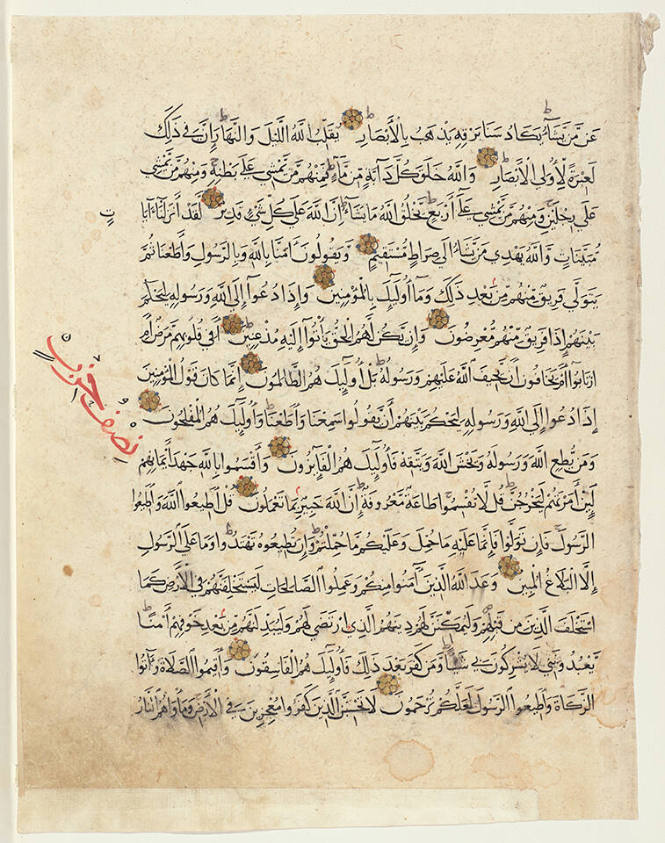 عَن مَّن يَشَاءُ يَكَادُ سَنَا بَرْقِهِ يَذْهَبُ بِالْأَبْصَارِ يُقَلِّبُ اللَّهُ اللَّيْلَ وَالنَّهَارَ إِنَّ فِي ذَلِكَ
لَعِبْرَةً لِأُولِي الْأَبْصَارِ وَاللَّهُ خَلَقَ كُلَّ دَابَّةٍ مِن مَّاءٍ فَمِنْهُم مَّن يَمْشِي عَلَى بَطْنِهِ وَمِنْهُم مَّن يَمْشِي
عَلَى رِجْلَيْنِ وَمِنْهُم مَّن يَمْشِي عَلَى أَرْبَعٍ يَخْلُقُ اللَّهُ مَا يَشَاءُ إِنَّ اللَّهَ عَلَى كُلِّ شَيْءٍ قَدِيرٌ لَقَدْ أَنزَلْنَا آيَا تٍ
مُبَيِّنَاتٍ وَاللَّهُ يَهْدِي مَن يَشَاءُ إِلَى صِرَاطٍ مُسْتَقِيمٍ وَيَقُولُونَ آمَنَّا بِاللَّهِ وَبِالرَّسُولِ وَأَطَعْنَا ثُمَّ
يَتَوَلَّى فَرِيقٌ مِنْهُم مِن بَعْدِ ذَلِكَ وَمَا أُولَئِكَ بِالْمُؤْمِنِينَ وَإِذَا دُعُوا إِلَى اللَّهِ وَرَسُولِهِ لِيَحْكُمَ
بَيْنَهُمْ إِذَا فَرِيقٌ مِنْهُم مُّعْرِضُونَ وَإِن يَكُن لَهُمُ الْحَقُّ يَأْتُوا إِلَيْهِ مُذْعِنِينَ أَفِي قُلُوبِهِم مَرَضٌ أَمِ
ارْتَابُوا أَمْ يَخَافُونَ أَن يَحِيفَ اللَّهُ عَلَيْهِمْ وَرَسُولُهُ بَلْ أُولَئِكَ هُمُ الظَّالِمُونَ إِنَّمَا كَانَ قَوْلَ الْمُؤْمِنِينَ
إِذَا دُعُوا إِلَى اللَّهِ وَرَسُولِهِ لِيَحْكُمَ بَيْنَهُمْ أَن يَقُولُوا سَمِعْنَا وَأَطَعْنَا وَأُولَئِكَ هُمُ الْمُفْلِحُونَ
وَمَن يُطِعِ اللَّهَ وَرَسُولَهُ وَيَخْشَ اللَّهَ وَيَتَّقْهِ فَأُولَئِكَ هُمُ الْفَائِزُونَ وَأَقْسَمُوا بِاللَّهِ جَهْدَ أَيْمَانِهِمْ
لَئِنْ أَمَرْتَهُمْ لَيَخْرُجُنَّ قُل لَا تُقْسِمُوا طَاعَةٌ مَعْرُوفَةٌ إِنَّ اللَّهَ خَبِيرٌ بِمَا تَعْمَلُونَ قُلْ أَطِيعُوا اللَّهَ وَأَطِيعُوا
الرَّسُولَ فَإِن تَوَلَّوْا فَإِنَّمَا عَلَيْهِ مَا حُمِّلَ وَعَلَيْكُم مَا حُمِّلْتُمْ وَإِن تُطِيعُوهُ تَهْتَدُوا وَمَا عَلَى الرَّسُولِ
إِلَّا الْبَلَاغُ الْمُبِينُ وَعَدَ اللَّهُ الَّذِينَ آمَنُوا مِنكُمْ وَعَمِلُوا الصَّالِحَاتِ لَيَسْتَخْلِفَنَّهُمْ فِي الْأَرْضِ كَمَا
اسْتَخْلَفَ الَّذِينَ مِن قَبْلِهِمْ وَلَيُمَكِّنَنَّ لَهُمْ دِينَهُمُ الَّذِي ارْتَضَى لَهُمْ وَلَيُبَدِّلَنَّهُم مِن بَعْدِ خَوْفِهِمْ أَمْنًا
يَعْبُدُونَنِي لَا يُشْرِكُونَ بِي شَيْئًا وَمَن كَفَرَ بَعْدَ ذَلِكَ فَأُولَئِكَ هُمُ الْفَاسِقُونَ وَأَقِيمُوا الصَّلَاةَ وَآتُوا
الزَّكَاةَ وَأَطِيعُوا الرَّسُولَ لَعَلَّكُمْ تُرْحَمُونَ لَا تَحْسَبَنَّ الَّذِينَ كَفَرُوا مُعْجِزِينَ فِي الْأَرْضِ وَمَأْوَاهُمُ النَّارُ
نصف حزب